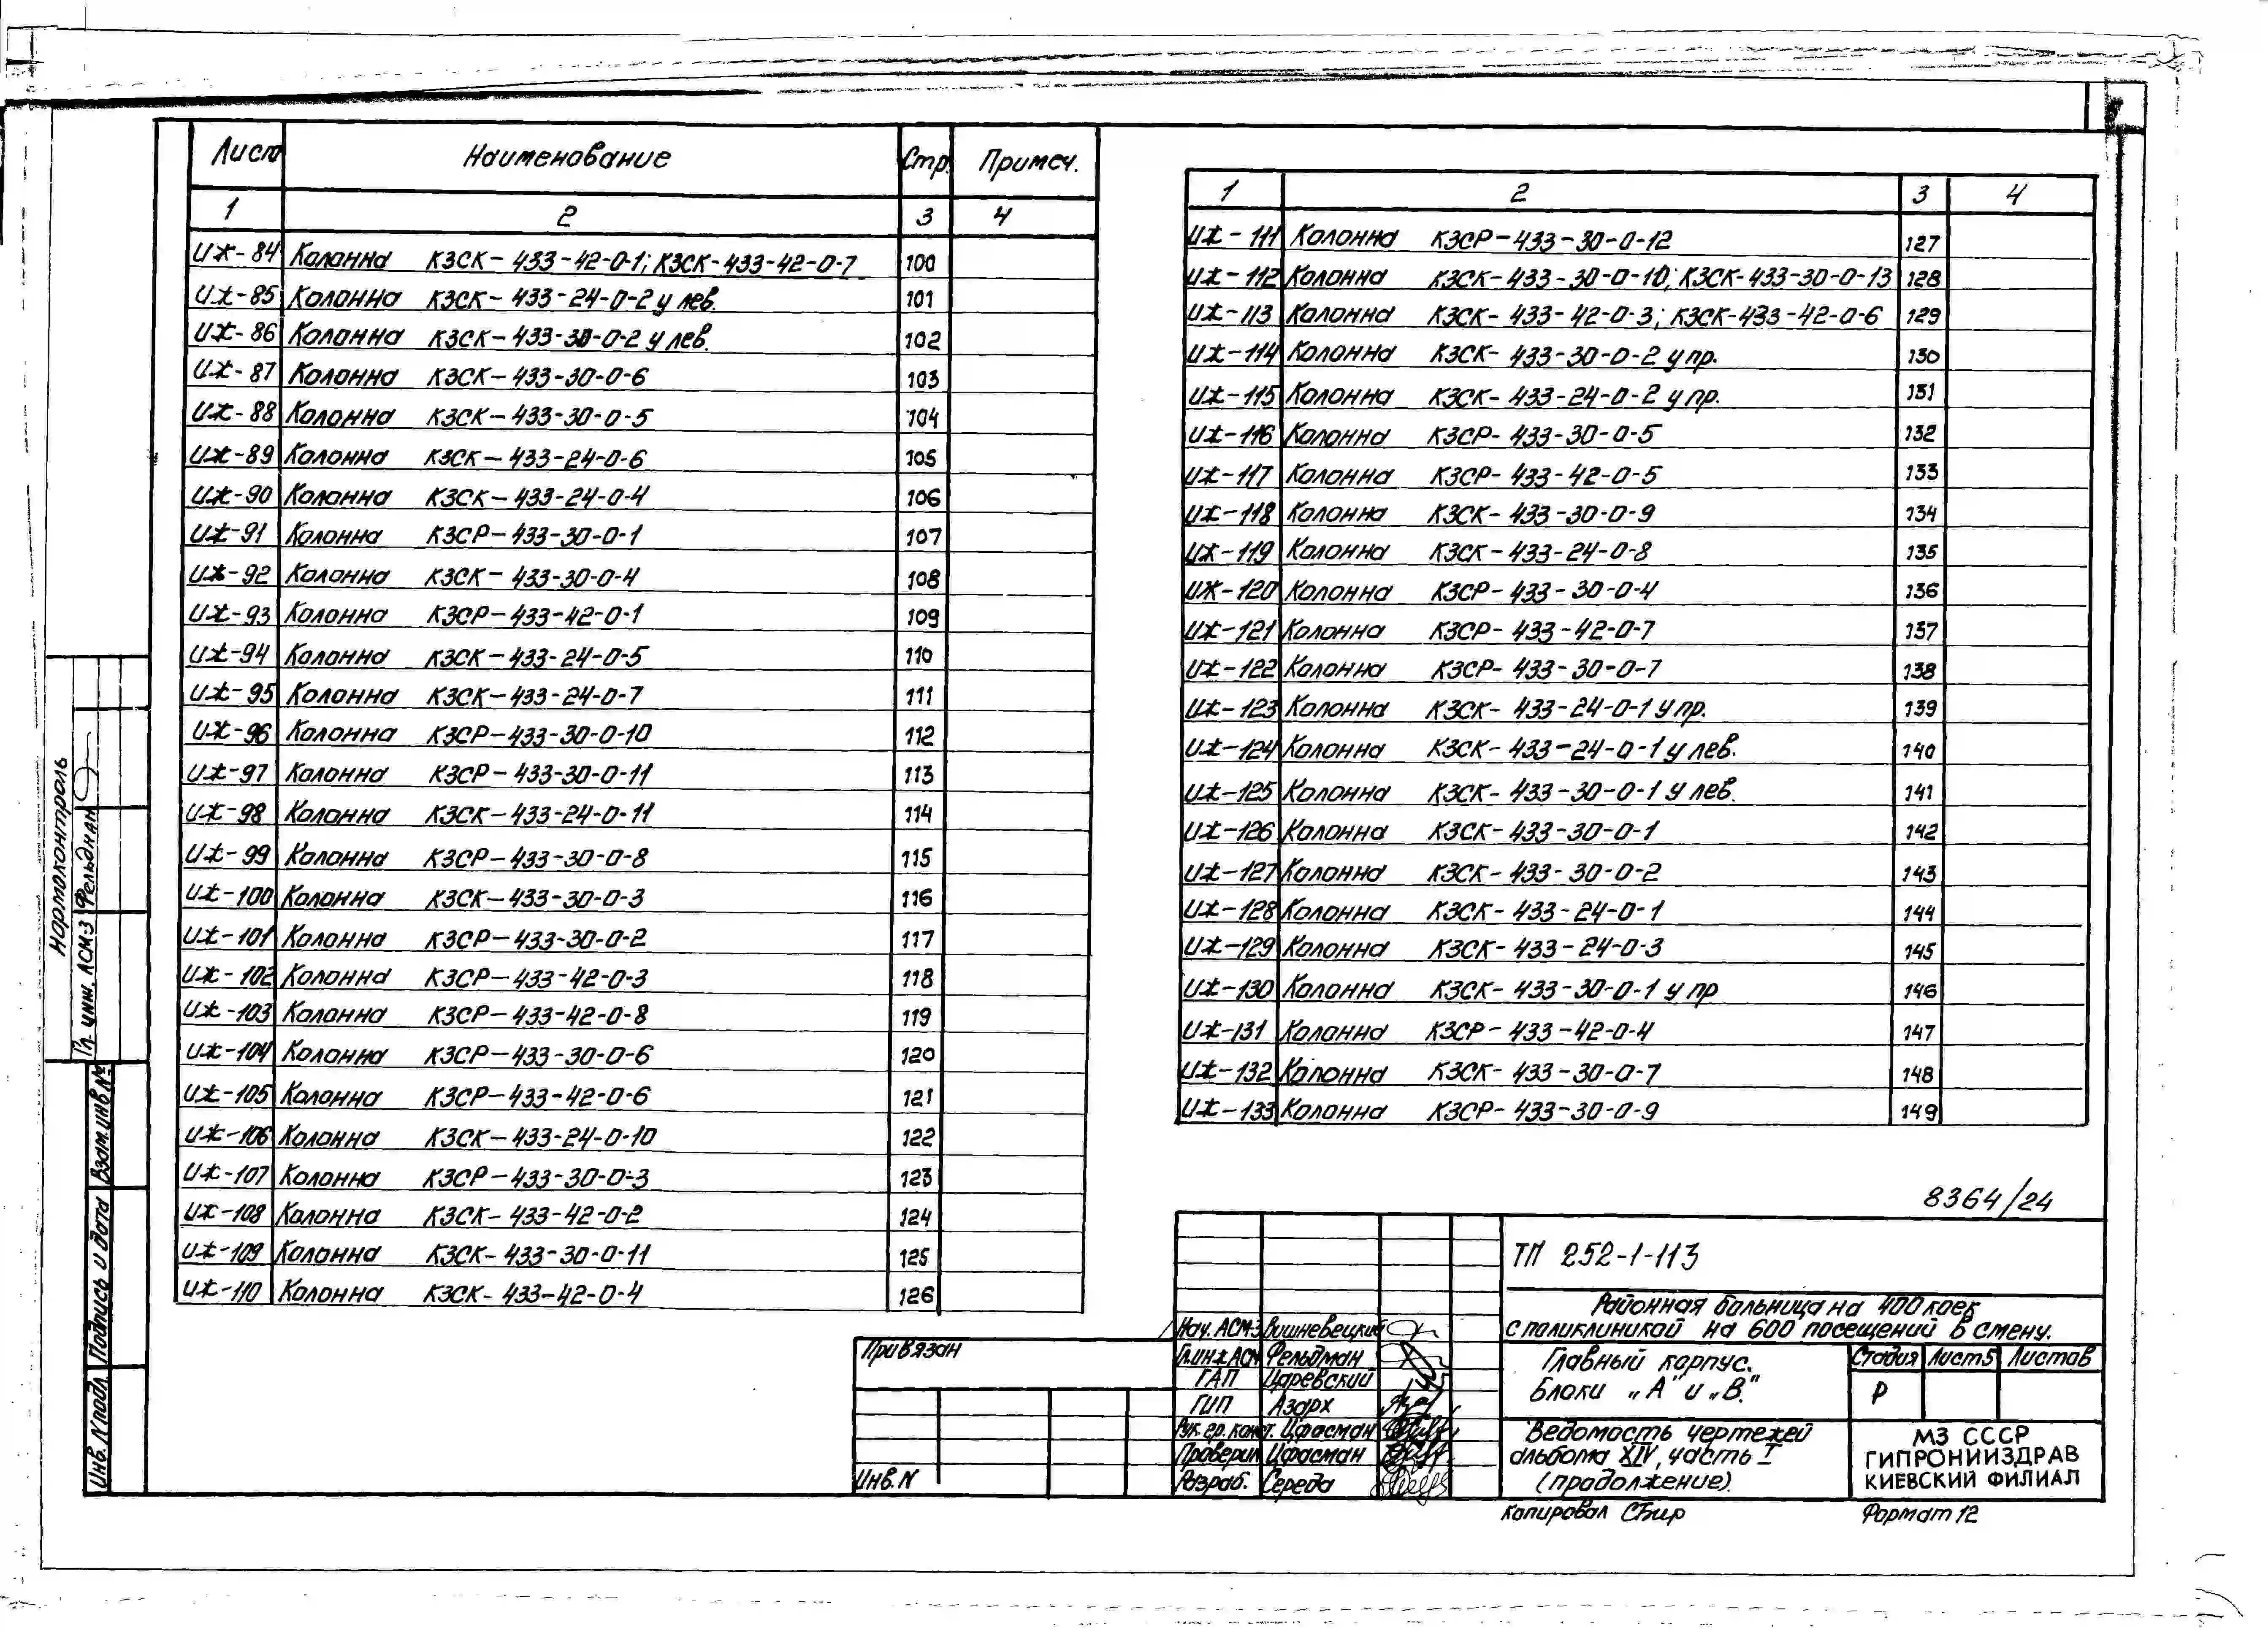 Лист Наименование Стр. Примеч.
1 2 3 4
ИЖ-84 Колонна КЗСК-433-42-0-1; КЗСК-433-42-0-7 100
ИЖ-85 Колонна КЗСК-433-24-0-2 у лев. 101
ИЖ-86 Колонна КЗСК-433-30-0-2 у лев. 102
ИЖ-87 Колонна КЗСК-433-30-0-6 103
ИЖ-88 Колонна КЗСК-433-30-0-5 104
ИЖ-89 Колонна КЗСК-433-24-0-6 105
ИЖ-90 Колонна КЗСК-433-24-0-4 106
ИЖ-91 Колонна КЗСР-433-30-0-1 107
ИЖ-92 Колонна КЗСК-433-30-0-4 108
ИЖ-93 Колонна КЗСР-433-42-0-1 109
ИЖ-94 Колонна КЗСК-433-24-0-5 110
ИЖ-95 Колонна КЗСК-433-24-0-7 111
ИЖ-96 Колонна КЗСР-433-30-0-10 112
ИЖ-97 Колонна КЗСР-433-30-0-11 113
ИЖ-98 Колонна КЗСК-433-24-0-11 114
ИЖ-99 Колонна КЗСР-433-30-0-8 115
ИЖ-100 Колонна КЗСК-433-30-0-3 116
ИЖ-101 Колонна КЗСР-433-30-0-2 117
ИЖ-102 Колонна КЗСР-433-42-0-3 118
ИЖ-103 Колонна КЗСР-433-42-0-8 119
ИЖ-104 Колонна КЗСР-433-30-0-6 120
ИЖ-105 Колонна КЗСР-433-42-0-6 121
ИЖ-106 Колонна КЗСК-433-24-0-10 122
ИЖ-107 Колонна КЗСР-433-30-0-3 123
ИЖ-108 Колонна КЗСК-433-42-0-2 124
ИЖ-109 Колонна КЗСК-433-30-0-11 125
ИЖ-110 Колонна КЗСК-433-42-0-4 126
1 2 3 4
ИЖ-111 Колонна КЗСР-433-30-0-12 127
ИЖ-112 Колонна КЗСК-433-30-0-10; КЗСК-433-30-0-13 128
ИЖ-113 Колонна КЗСК-433-42-0-3; КЗСК-433-42-0-6 129
ИЖ-114 Колонна КЗСК-433-30-0-2 у пр. 130
ИЖ-115 Колонна КЗСК-433-24-0-2 у пр. 131
ИЖ-116 Колонна КЗСР-433-30-0-5 132
ИЖ-117 Колонна КЗСР-433-42-0-5 133
ИЖ-118 Колонна КЗСК-433-30-0-9 134
ИЖ-119 Колонна КЗСК-433-24-0-8 135
ИЖ-120 Колонна КЗСР-433-30-0-4 136
ИЖ-121 Колонна КЗСР-433-42-0-7 137
ИЖ-122 Колонна КЗСР-433-30-0-7 138
ИЖ-123 Колонна КЗСК-433-24-0-1 у пр. 139
ИЖ-124 Колонна КЗСК-433-24-0-1 у лев. 140
ИЖ-125 Колонна КЗСК-433-30-0-1 у лев. 141
ИЖ-126 Колонна КЗСК-433-30-0-1 142
ИЖ-127 Колонна КЗСК-433-30-0-2 143
ИЖ-128 Колонна КЗСК-433-24-0-1 144
ИЖ-129 Колонна КЗСК-433-24-0-3 145
ИЖ-130 Колонна КЗСК-433-30-0-1 у пр 146
ИЖ-131 Колонна КЗСР-433-42-0-4 147
ИЖ-132 Колонна КЗСК-433-30-0-7 148
ИЖ-133 Колонна КЗСР-433-30-0-9 149
8364/24
ТП 252-1-113
Районная больница на 400 коек
с поликлиникой на 600 посещений в смену.
Главный корпус.
Блоки „А" и „В."
Стадия Лист5 Листов
Р
Ведомость чертежей
альбома XIV, часть I
(продолжение).
МЗ СССР
ГИПРОНИИЗДРАВ
КИЕВСКИЙ ФИЛИАЛ
Нач. АСМ-3 Вишневецкий
Гл.инж АСМ Фельдман
ГАП Царевский
ГИП Азарх
Рук. гр. конст. Цфасман
Проверил Цфасман
Разраб. Середа
Привязан
Инв. N
Копировал Сбир
Формат 12
Нормоконтроль
Гл. инж. АСМ-3 Фельдман
Взам. инв. №
Подпись и дата
Инв. N подл.